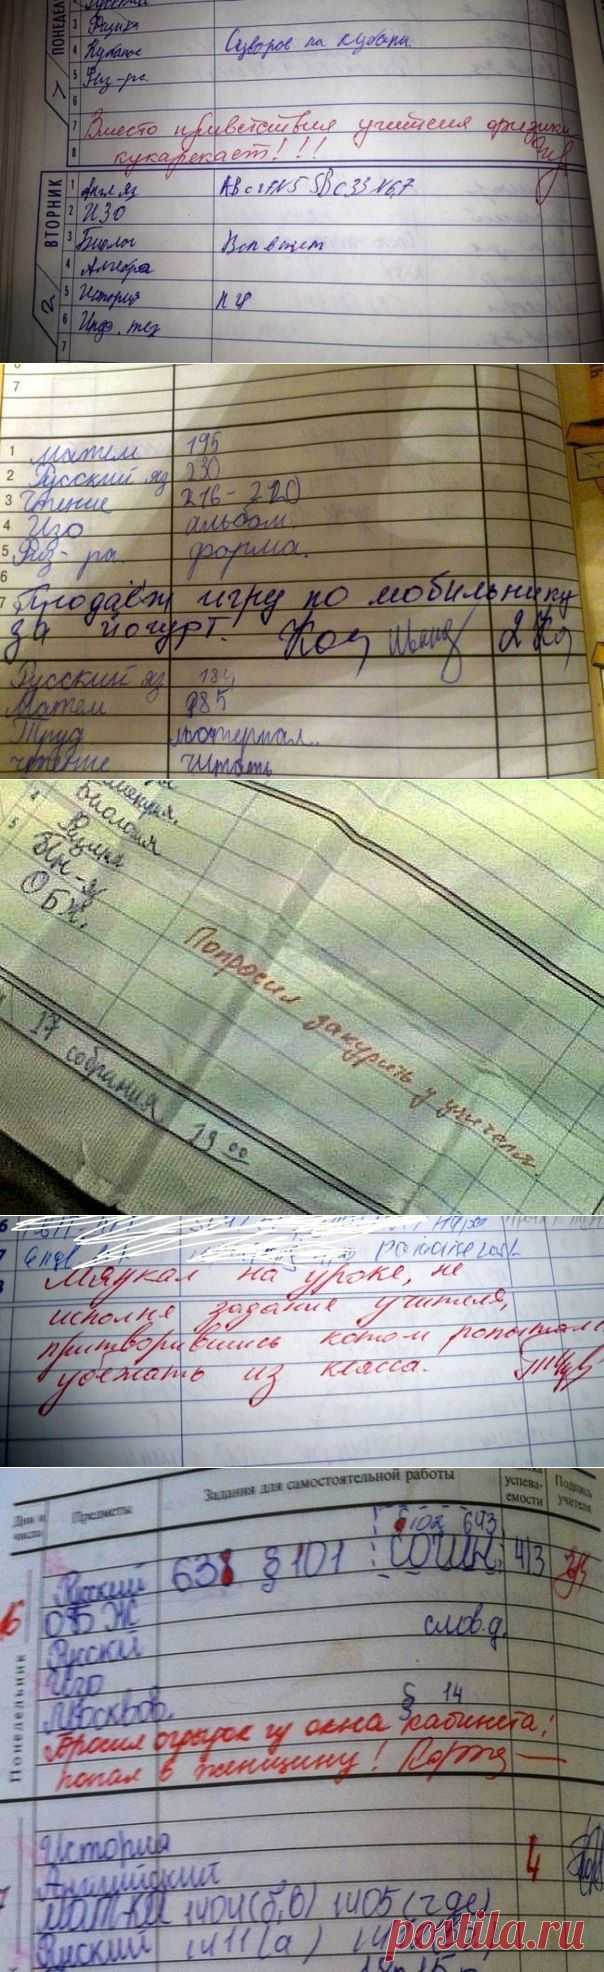 ПОНЕДЕЛ
3 Физика
4 Кубанов Суворов на Кубани.
5 Физ-ра
6
7 Вместо приветствия учителя физики
8 кукарекает!!!
ВТОРНИК
1 Англ яз
2 ИЗО
3 Биолог
4 Алгебра
5 История
6 Инфо. тех
7
2
7
1 матем 195
2 Русский яз 230
3 Чтение 216-220
4 Изо альбом.
5 Физ-ра. форма.
6
7 Продаёт игру по мобильнику
за йогурт.
Русский яз 184
Матем 985
Труд материал..
чтение читать
4 Биология
5 Физика
Ин-яз
ОБЖ.
Попросил закурить у учителя.
17 собрания 19 00
6
7
8 Мяукал на уроке, не
исполня задание учителя,
притворившись котом
убежать из класса.
Дни и числа Предметы Задания для самостоятельной работы успева-емости Подпись учителя
§102 643
Русский 638 §101 сочин 4/3
ОБЖ
Русский слов.д.
Изо
Москвов. § 14
Понедельник
Бросил огрызок из окна кабинета!
попал в женщину!
История 4
Английский
1404(б,в) 1405(где)
Русский 1411(а)
postila.ru